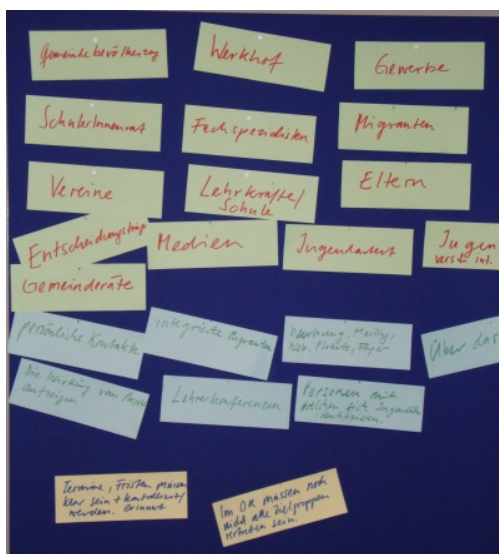 Gemeindebevölkerung
Werkhof
Gewerbe
SchülerInnenrat
Fachspezialisten
Migranten
Vereine
Lehrkräfte/
Schule
Eltern
Entscheidungsträg
Medien
Jugendarbeit
Jugen
versch. int.
Gemeinderäte
persönliche Kontakte
integrierte Migranten
Werbung, Mailing,
Web, Plakate, Flyer
Über das
Die Wirkung vom Projekt
aufzeigen
Lehrerkonferenzen
Personen mit
welchen sich Jugendliche
identifizieren.
Termine, Fristen müssen
klar sein + kontrolliert/
werden. erinnert
Im OK müssen noch
nicht alle Zielgruppen
vertreten sein.